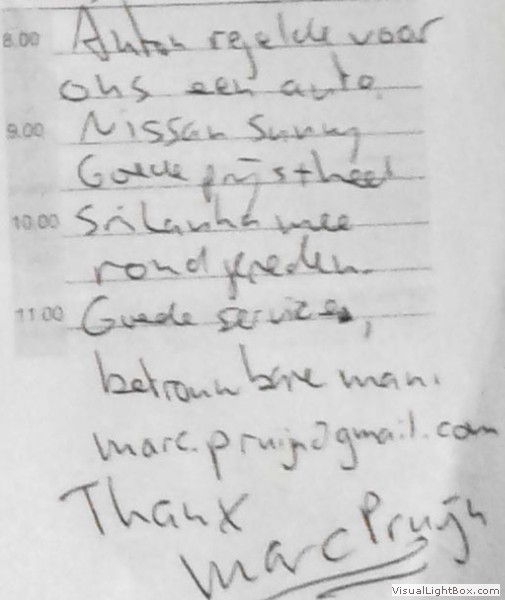 8.00 Anton regelde voor
ons een auto.
9.00 Nissan Sunny
Goede prijs + heel
10.00 Sri Lanka mee
rond gereden.
11.00 Goede services,
betrouwbare man.
marc.pruijn@gmail.com
Thanx
Marc Pruijn
VisualLightBox.com